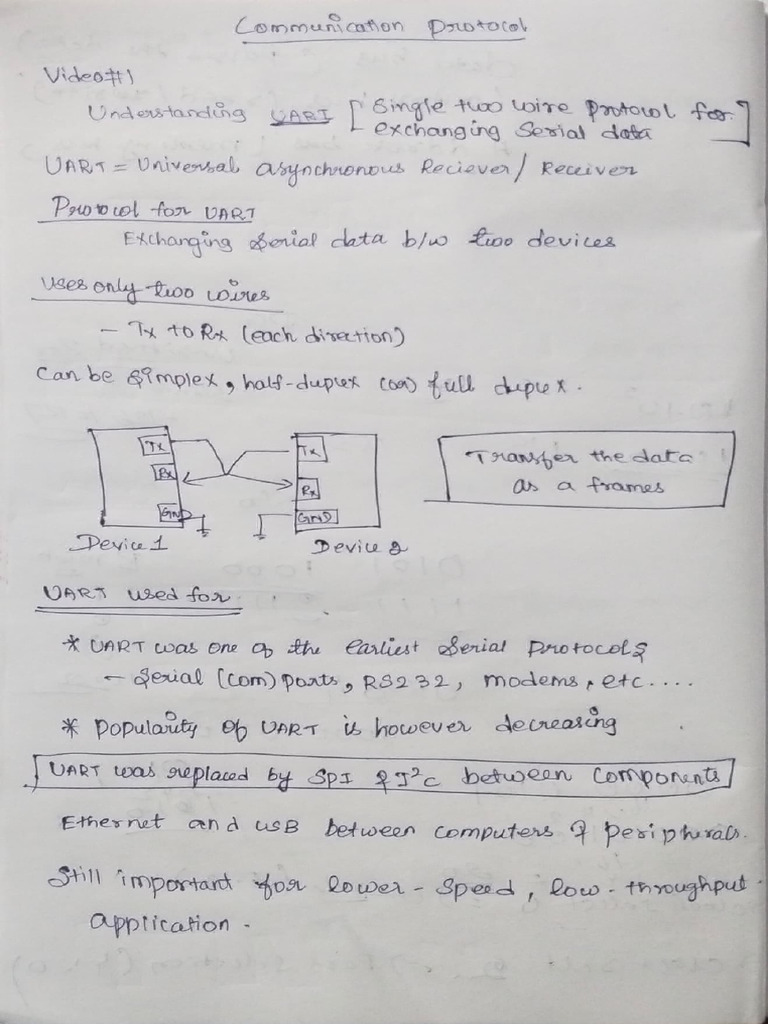 Communication Protocol
Video#1
Understanding UART [Single two wire Protocol for
exchanging Serial data]
UART = Universal asynchronous Reciever/ Receiver
Protocol for UART
Exchanging Serial data b/w two devices
Uses only two wires
- Tx to Rx (each direction)
Can be Simplex, half-duplex (or) full duplex.
Tx
Rx
GND
Device 1
Tx
Rx
GND
Device 2
Transfer the data
as a frames
UART used for
* UART was one of the Earliest Serial Protocols
- Serial (com) ports, RS232, modems, etc....
* Popularity of UART is however decreasing
UART was replaced by SPI & I²C between components
Ethernet and USB between computers & Peripherals.
Still important for lower-speed, low-throughput
application.